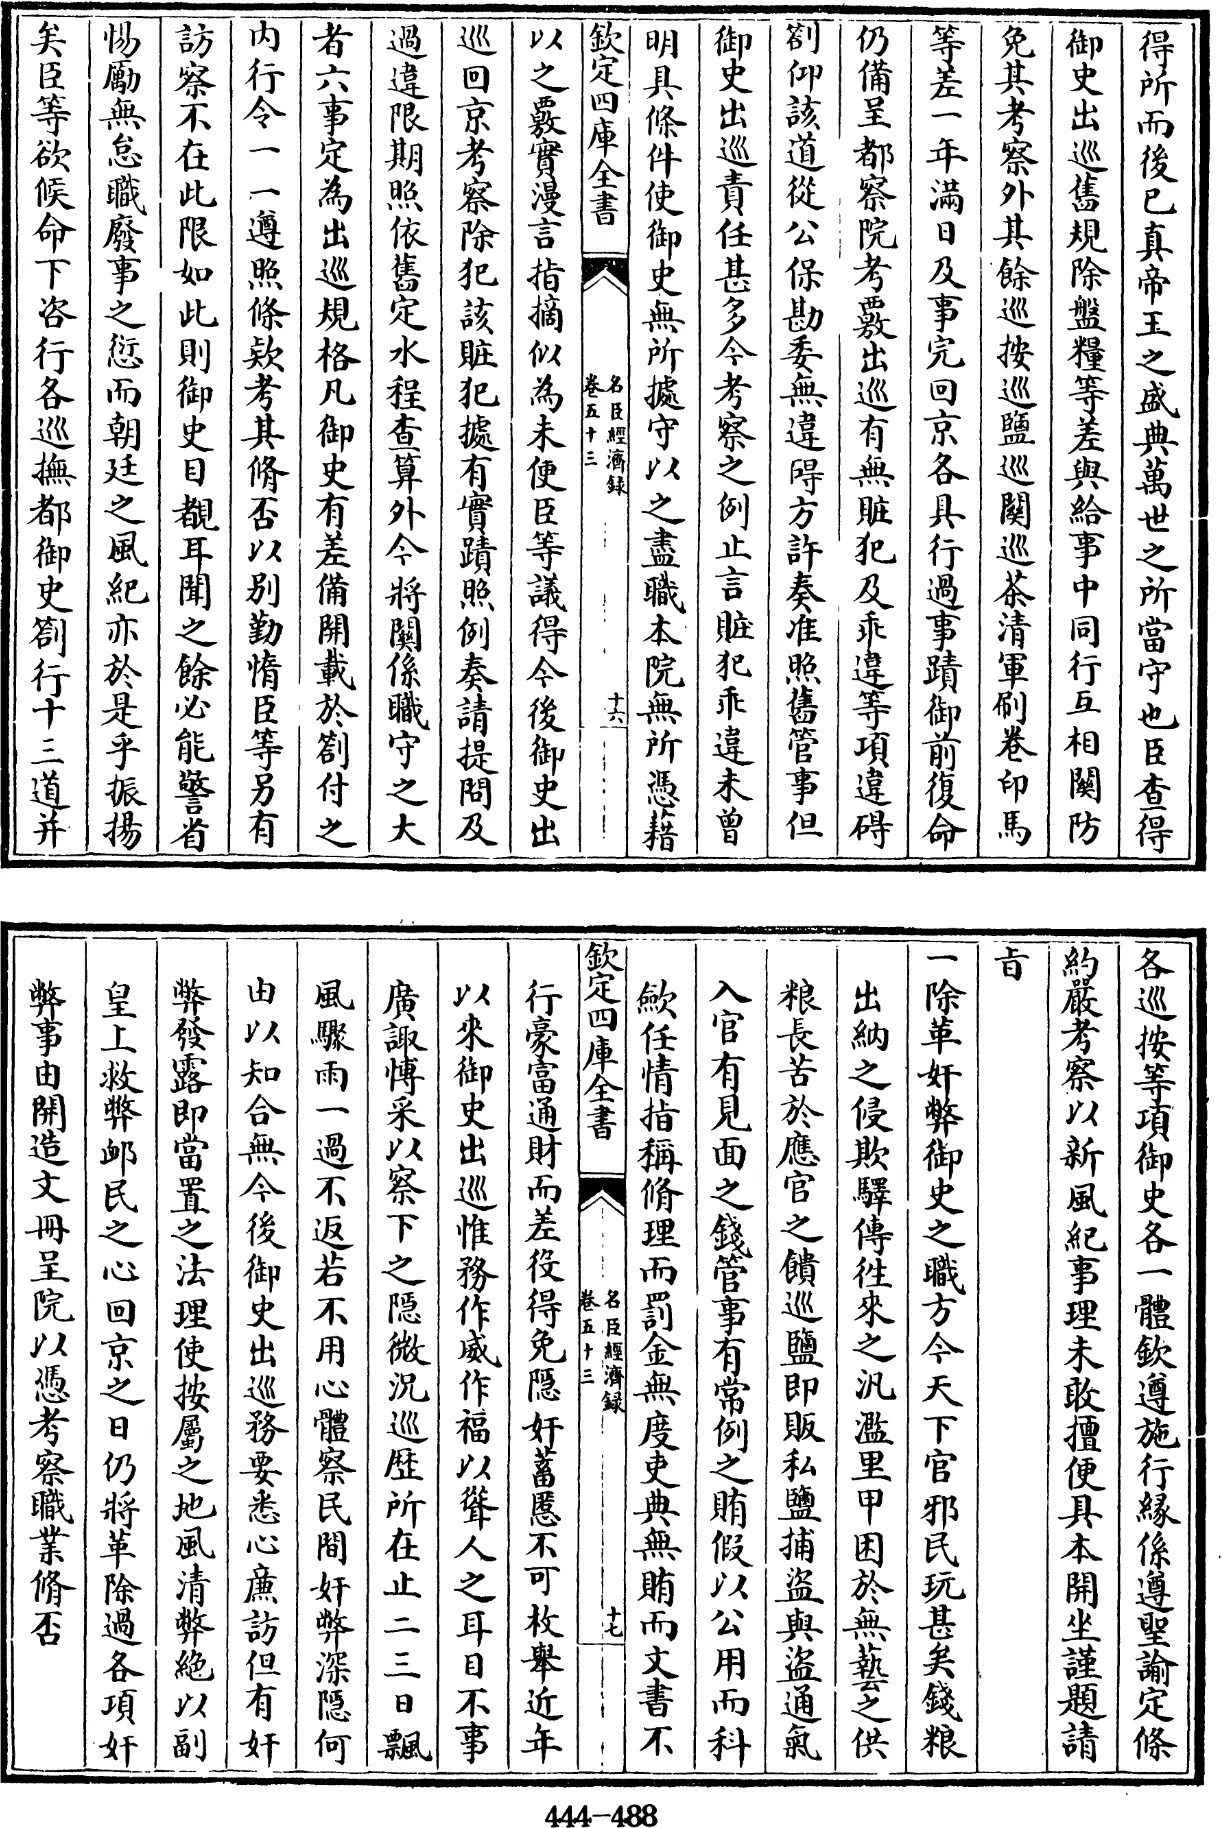 得所而後已真帝王之盛典萬世之所當守也臣查得
御史出巡舊規除盤糧等差與給事中同行互相關防
免其考察外其餘巡按巡鹽巡關巡茶清軍刷卷印馬
等差一年滿日及事完回京各具行過事蹟御前復命
仍備呈都察院考覈出巡有無贓犯及乖違等項違碍
劄仰該道從公保勘委無違碍方許奏准照舊管事但
御史出巡責任甚多今考察之例止言贓犯乖違未曾
明具條件使御史無所據守以之盡職本院無所憑藉
欽定四庫全書
名臣經濟録
卷五十三
十六
以之覈實漫言指摘似為未便臣等議得今後御史出
巡回京考察除犯該贓犯據有實蹟照例奏請提問及
過違限期照依舊定水程查算外今將關係職守之大
者六事定為出巡規格凡御史有差備開載於劄付之
内行令一一遵照條欵考其脩否以别勤惰臣等另有
訪察不在此限如此則御史目覩耳聞之餘必能警省
惕勵無怠職廢事之愆而朝廷之風紀亦於是乎振揚
矣臣等欲候命下咨行各巡撫都御史劄行十三道并
各巡按等項御史各一體欽遵施行緣係遵聖諭定條
約嚴考察以新風紀事理未敢擅便具本開坐謹題請
㫖
一除革奸弊御史之職方今天下官邪民玩甚矣錢粮
出納之侵欺驛傳徃來之汎濫里甲困於無藝之供
粮長苦於應官之饋巡鹽即販私鹽捕盗與盗通氣
入官有見面之錢管事有常例之賄假以公用而科
歛任情指稱脩理而罰金無度吏典無賄而文書不
欽定四庫全書
名臣經濟録
卷五十三
十七
行豪富通財而差役得免隱奸蓄慝不可枚舉近年
以來御史出巡惟務作威作福以聳人之耳目不事
廣諏愽采以察下之隱微况巡歴所在止二三日飄
風驟雨一過不返若不用心體察民間奸弊深隱何
由以知合無今後御史出巡務要悉心亷訪但有奸
弊發露即當置之法理使按屬之地風清弊絶以副
皇上救弊邮民之心回京之日仍將革除過各項奸
弊事由開造文冊呈院以憑考察職業脩否
444-488